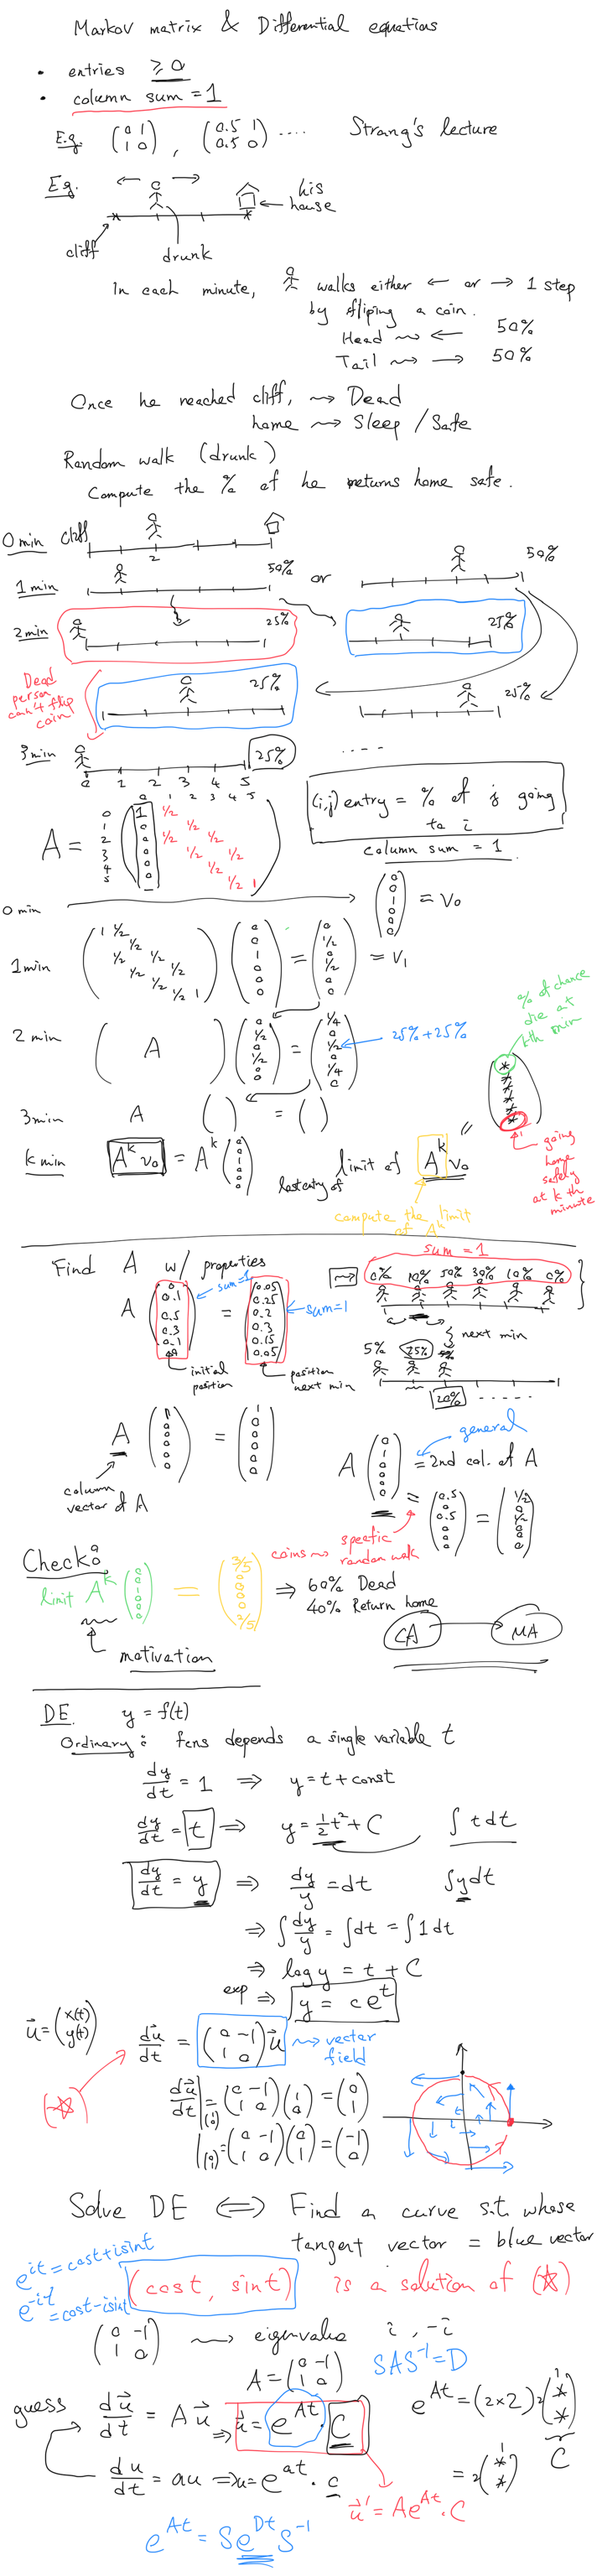 Markov matrix & Differential equations
• entries ≥ 0
• column sum = 1
E.g. (0 1; 1 0), (0.5 1; 0.5 0) .... Strang's lecture
E.g.
his house
cliff drunk
In each minute, walks either ← or → 1 step
by fliping a coin.
Head ⇝ ← 50%
Tail ⇝ → 50%
Once he reached cliff, ⇝ Dead
home ⇝ Sleep / Safe
Random walk (drunk)
Compute the % of he returns home safe.
0 min cliff 2
1 min 50% or 50%
2 min 25% 25%
Dead person can't flip coin
25% 25%
3 min 25% ....
0 1 2 3 4 5
(i,j) entry = % of j going to i
column sum = 1
0 1 2 3 4 5
A =
0 1 1/2
1 0 1/2
2 0 1/2 1/2
3 0 1/2 1/2
4 0 1/2
5 0 1/2 1
0 min (0 0 1 0 0 0) = v₀
1 min (1 1/2 1/2 1/2 1/2 1/2 1/2 1/2 1/2 1) (0 0 1 0 0 0) = (0 1/2 0 1/2 0 0) = v₁
2 min ( A ) (0 1/2 0 1/2 0 0) = (1/4 0 1/2 0 1/4 0) ← 25% + 25%
% of chance die at kth min
3 min A ( ) = ( )
k min Aᵏ v₀ = Aᵏ (0 0 1 0 0 0) last entry of limit of Aᵏ v₀ = (* * * * * *)
going home safely at kth minute
compute the limit of Aᵏ
Find A w/ properties
sum = 1
A (0 0.1 0.5 0.3 0.1 0) = (0.05 0.25 0.2 0.3 0.15 0.05)
sum=1 sum=1
0% 10% 50% 30% 10% 0%
initial position position next min
next min
5% 25%
20% ......
A (1 0 0 0 0 0) = (1 0 0 0 0 0)
column vector of A
general
A (0 1 0 0 0 0) = 2nd col. of A
= (0.5 0 0.5 0 0 0) = (1/2 0 1/2 0 0 0)
coins ⇝ specific random walk
Check:
limit Aᵏ (0 0 1 0 0 0) = (3/5 0 0 0 0 2/5) ⇒ 60% Dead
40% Return home
motivation
CA → MA
DE. y = f(t)
Ordinary: fcns depends a single variable t
dy/dt = 1 ⇒ y = t + const
dy/dt = t ⇒ y = 1/2 t² + C ∫ t dt
dy/dt = y ⇒ dy/y = dt ∫ y dt
⇒ ∫ dy/y = ∫ dt = ∫ 1 dt
⇒ log y = t + C
exp ⇒ y = c eᵗ
u⃗ = (x(t) y(t)) du⃗/dt = (0 -1; 1 0) u⃗ ⇝ vector field
(☆)
du⃗/dt |(1 0) = (0 -1; 1 0)(1 0) = (0 1)
|(0 1) = (0 -1; 1 0)(0 1) = (-1 0)
Solve DE ⇔ Find a curve s.t. whose
tangent vector = blue vector
eⁱᵗ = cost + isint
e⁻ⁱᵗ = cost - isint
(cost, sint) is a solution of (☆)
(0 -1; 1 0) ⇝ eigenvalue i, -i
A = (0 -1; 1 0) SAS⁻¹ = D
guess du⃗/dt = A u⃗ ⇒ u⃗ = e^{At} · C
e^{At} = (2×2) 2(* *) C
du/dt = au ⇒ u = e^{at} · c
= 2(* *)
u⃗' = Ae^{At} · C
e^{At} = S e^{Dt} S⁻¹